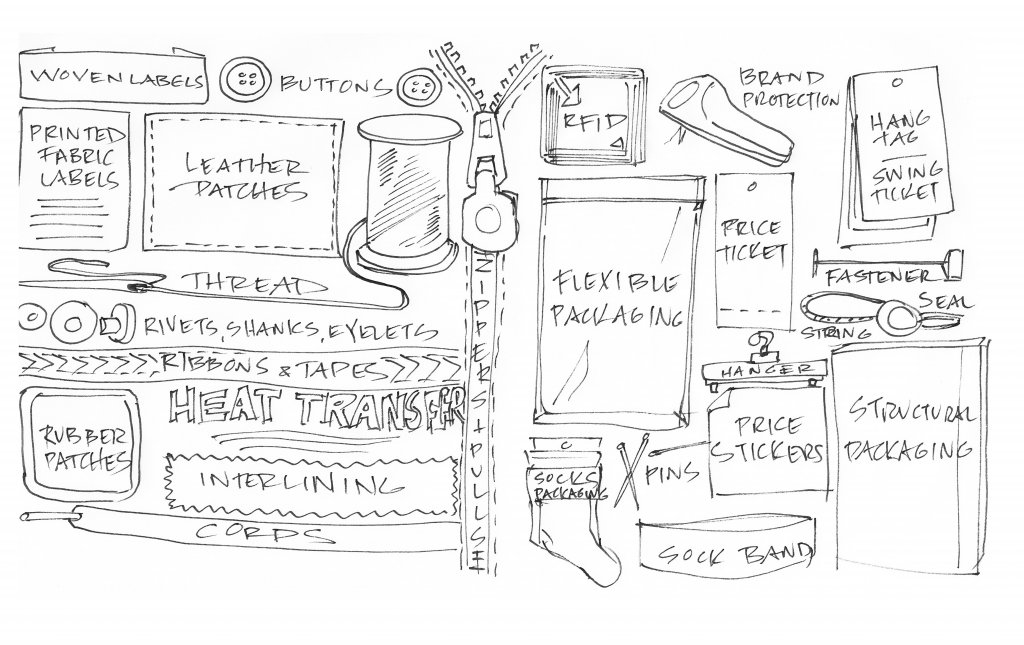 WOVEN LABELS
BUTTONS
PRINTED
FABRIC
LABELS
LEATHER
PATCHES
THREAD
RIVETS, SHANKS, EYELETS
RIBBONS & TAPES
HEAT TRANSFER
RUBBER
PATCHES
INTERLINING
CORDS
ZIPPERS + PULLS
RFID
BRAND
PROTECTION
HANG
TAG
SWING
TICKET
FLEXIBLE
PACKAGING
PRICE
TICKET
FASTENER
SEAL
STRING
HANGER
PRICE
STICKERS
STRUCTURAL
PACKAGING
SOCKS
PACKAGING
PINS
SOCK BAND